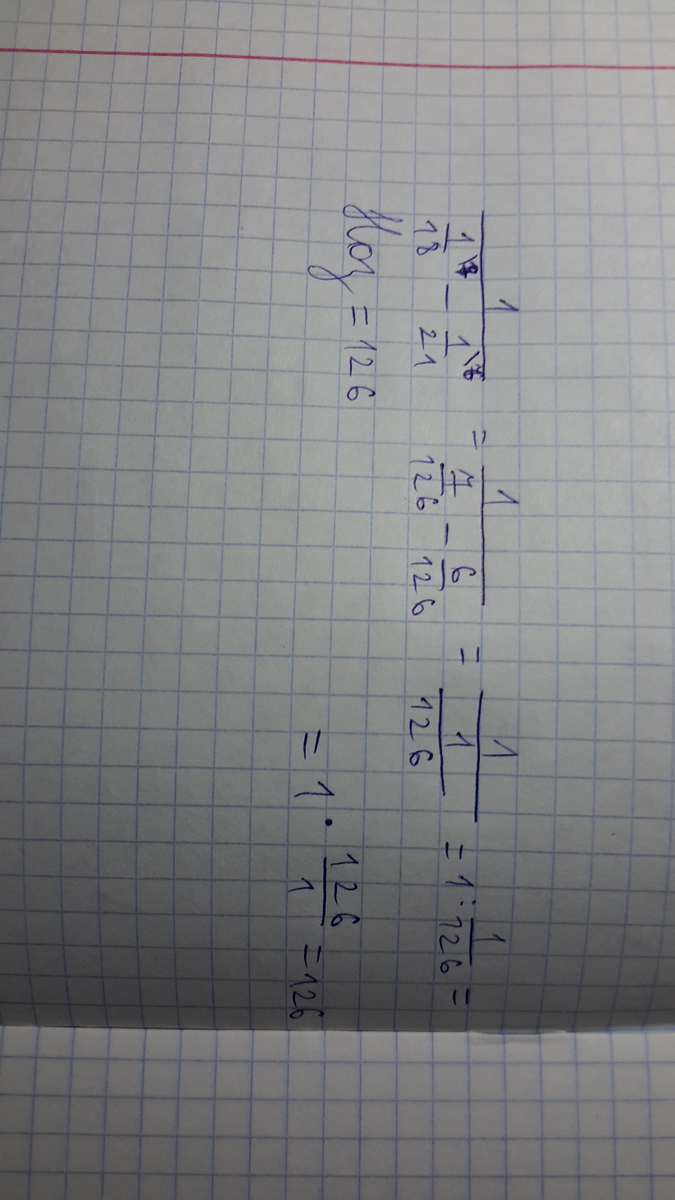 1/(1/18 − 1/21) = 1/(7/126 − 6/126) = 1/(1/126) = 1 : 1/126 =
= 1 · 126/1 = 126
Ноз = 126